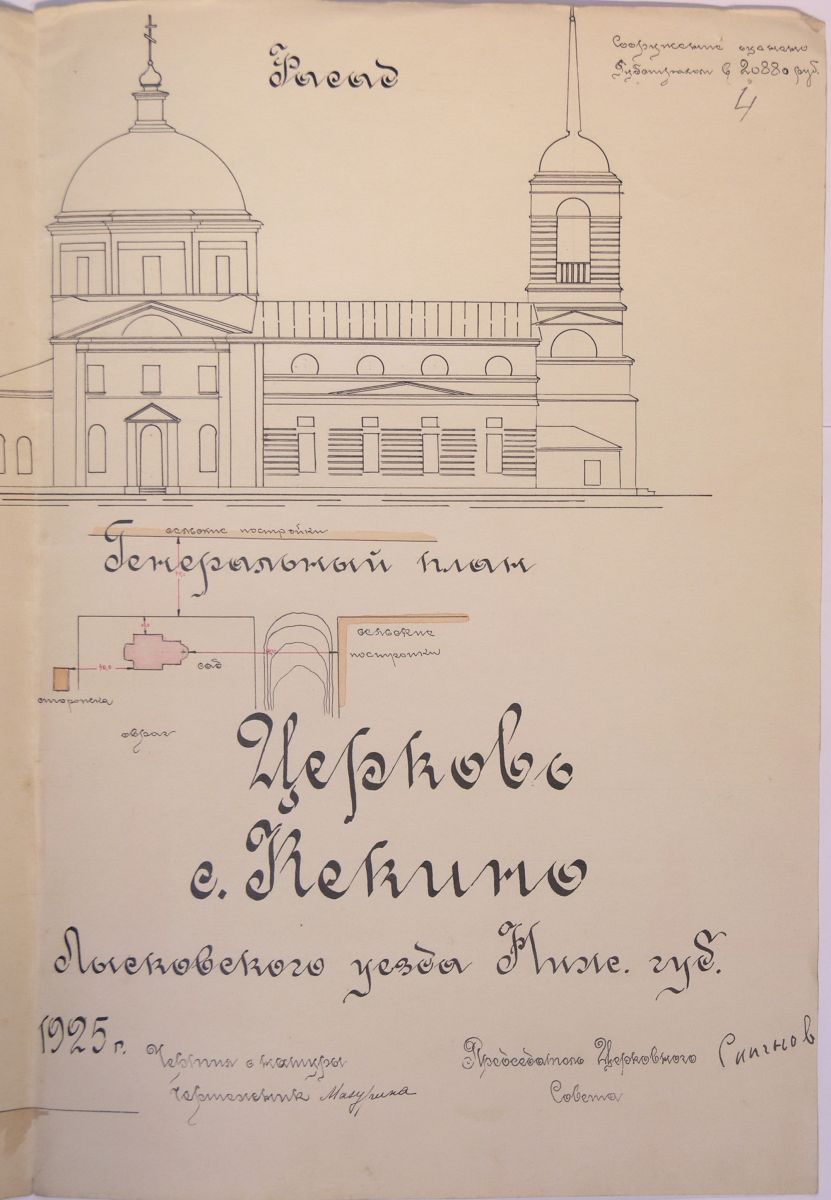 Фасад
Сооружение оценено
Губстрахом в 20880 руб.
4
сельские постройки
Генеральный план
сельские
постройки
сад
40,0
сторожка
овраг
Церковь
с. Кекино
Лысковского уезда Ниж. губ.
1925 г.
Чертил с натуры
Чертежник
Председатель Церковного
Совета